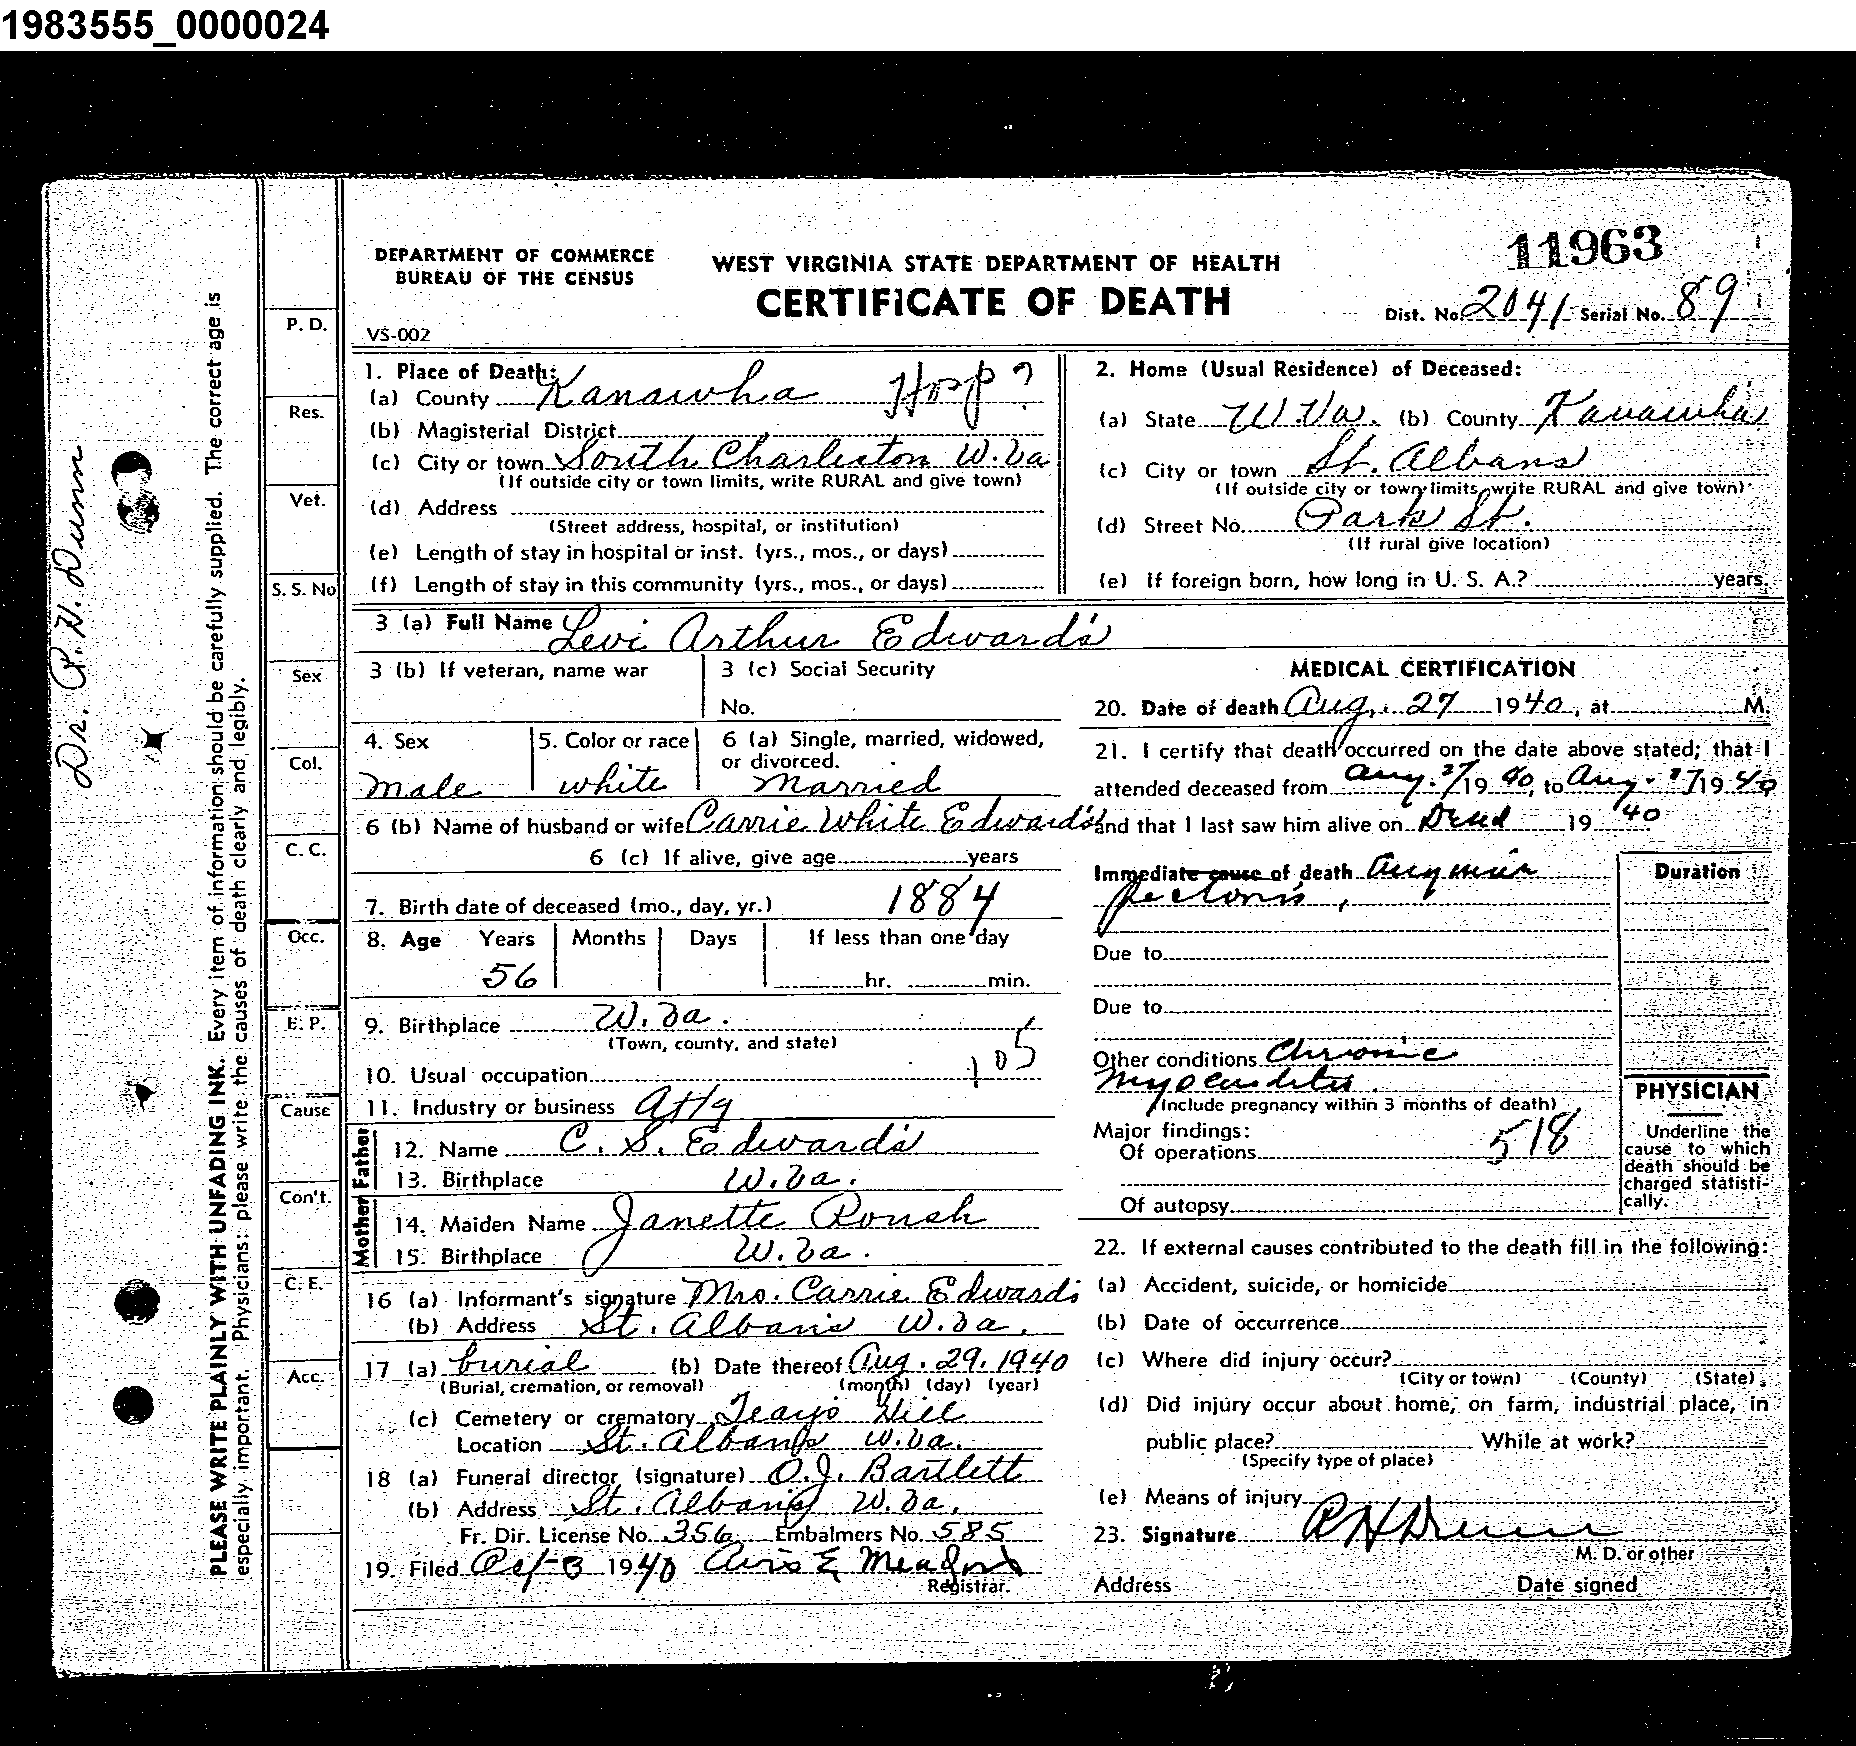 1983555_0000024
DEPARTMENT OF COMMERCE
BUREAU OF THE CENSUS
VS-002
WEST VIRGINIA STATE DEPARTMENT OF HEALTH
CERTIFICATE OF DEATH
11963
Dist. No. 2041 Serial No. 89
Dr. R. H. Dunn
PLEASE WRITE PLAINLY WITH UNFADING INK. Every item of information should be carefully supplied. The correct age is
especially important. Physicians: please write the causes of death clearly and legibly.
P. D.
Res.
Vet.
S. S. No
Sex
Col.
C. C.
Occ.
E. P.
Cause
Con't.
C. E.
Acc.
1. Place of Death:
(a) County Kanawha Hosp?
(b) Magisterial District
(c) City or town South Charleston W.Va
(If outside city or town limits, write RURAL and give town)
(d) Address
(Street address, hospital, or institution)
(e) Length of stay in hospital or inst. (yrs., mos., or days)
(f) Length of stay in this community (yrs., mos., or days)
2. Home (Usual Residence) of Deceased:
(a) State W.Va. (b) County Kanawha
(c) City or town St. Albans
(If outside city or town limits, write RURAL and give town)
(d) Street No. Park St.
(If rural give location)
(e) If foreign born, how long in U. S. A.? years.
3 (a) Full Name Levi Arthur Edwards
3 (b) If veteran, name war
3 (c) Social Security
No.
4. Sex
male
5. Color or race
white
6 (a) Single, married, widowed,
or divorced.
Married
6 (b) Name of husband or wife Carrie White Edwards
6 (c) If alive, give age years
7. Birth date of deceased (mo., day, yr.) 1884
8. Age Years Months Days If less than one day
56 hr. min.
9. Birthplace W.Va.
(Town, county, and state)
10. Usual occupation 105
11. Industry or business Atty
Father
12. Name C. S. Edwards
13. Birthplace W.Va.
Mother
14. Maiden Name Janette Roush
15. Birthplace W.Va.
16 (a) Informant's signature Mrs. Carrie Edwards
(b) Address St. Albans W.Va.
17 (a) burial (b) Date thereof Aug. 29. 1940
(Burial, cremation, or removal) (month) (day) (year)
(c) Cemetery or crematory Teays Hill
Location St. Albans W.Va.
18 (a) Funeral director (signature) O.J. Bartlett
(b) Address St. Albans W.Va.
Fr. Dir. License No. 356 Embalmers No. 585
19. Filed Oct-3 1940 Avis E Meadows
Registrar.
MEDICAL CERTIFICATION
20. Date of death Aug. 27 1940, at M.
21. I certify that death occurred on the date above stated; that I
attended deceased from Aug. 27 19 40, to Aug. 27 19 40
and that I last saw him alive on Dead 19 40
Immediate cause of death Angina
pectoris,
Duration
Due to
Due to
Other conditions Chronic
myocarditis.
(Include pregnancy within 3 months of death)
Major findings:
Of operations 518
Of autopsy
PHYSICIAN
Underline the
cause to which
death should be
charged statisti-
cally.
22. If external causes contributed to the death fill in the following:
(a) Accident, suicide, or homicide
(b) Date of occurrence
(c) Where did injury occur?
(City or town) (County) (State)
(d) Did injury occur about home, on farm, industrial place, in
public place? While at work?
(Specify type of place)
(e) Means of injury
23. Signature R H Dunn
M. D. or other
Address Date signed